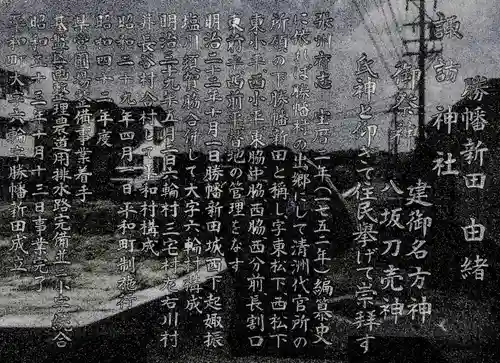 勝幡新田 由緒
諏訪神社
御祭神 建御名方神
八坂刀売神
氏神と仰ぎて住民挙げて崇拝す
張州府志 宝暦二年(一七五二年)編纂史
に依れば勝幡村の出郷にして清洲代官所の
所領の下勝幡新田と称し字東松下西松下
東小平西小平東脇中脇西脇西分前長割口
東前平西前平
地の管理をなす
明治二十三年十月一日勝幡新田城西下起嫩振
塩川須賀脇合併して大字六輪村構成
明治三十九年五月一日六輪村三宅村左右川村
長谷村合村して平和村構成
昭和二十九年四月一日平和町制施行
昭和四十二年度
県営圃場整備事業着手
基盤区画整理農道用排水路完備並に小字統合
昭和五十三年十月十三日事業完了
平和町大字六輪字勝幡新田成立